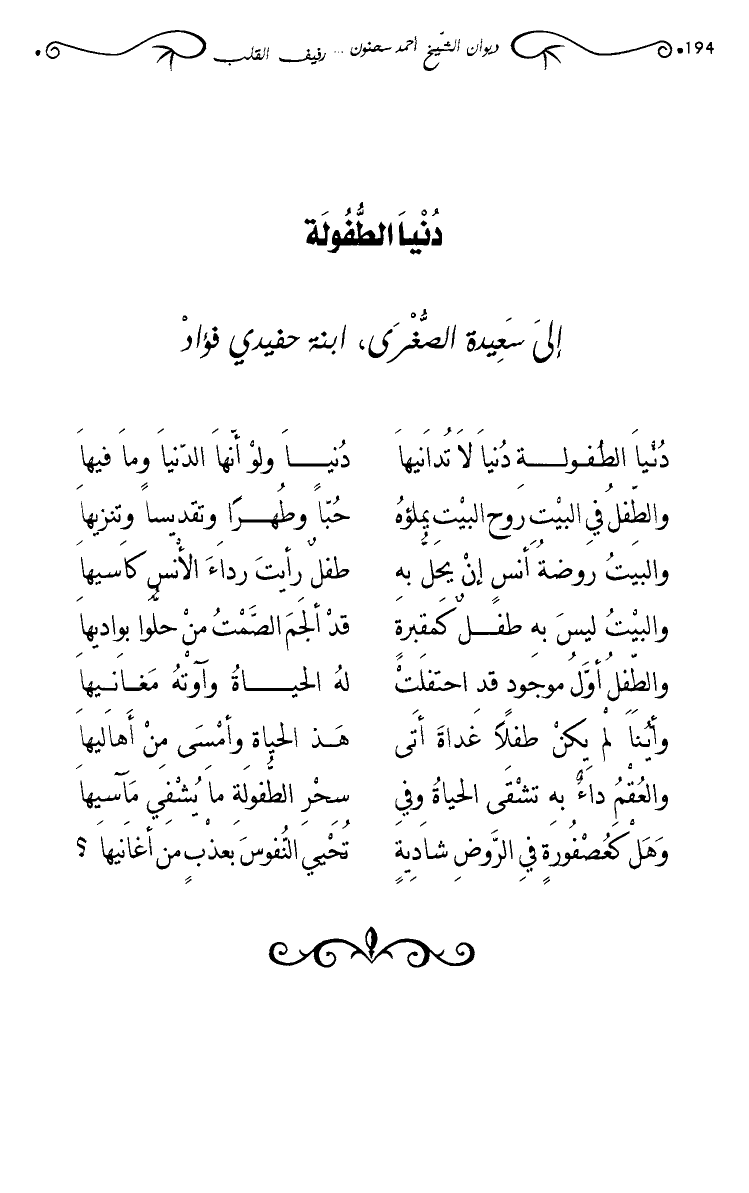 194 ديوان الشّيخ أحمد سحنون ... رفيف القلب
دُنْياَ الطُّفُولَة
إلىَ سَعِيدة الصُّغْرَى، ابنة حفيدي فؤادْ
دُنْياَ الطفولــةِ دُنياَ لاَ تُدانَيها دُنيــاَ ولوْ أنّهاَ الدّنياَ وماَ فيهاَ
والطّفلُ فيِ البيْتِ روح البيْتِ يملؤهُ حُبّاً وطُهــرًا وتقديساً وتنزيهاَ
والبيتُ روضةُ أنسٍ إنْ يحلَّ بهِ طفلٌ رأيتَ رداءَ الأُنسِ كاَسيهاَ
والبيْتُ ليسَ بهِ طفــلٌ كَمقبرةٍ قدْ ألجَمَ الصَّمْتُ منْ حلُّوا بواديهاَ
والطّفلُ أوّلُ موجودٍ قد احتفلتْ لهُ الحيــاةُ وآوتْهُ مَغانــيهاَ
وأيّناَ لمْ يكنْ طفلاً غداةَ أتى هَــذِ الحياةِ وأمْسَى مِنْ أهاَليهاَ
والعُقْمُ داءٌ بهِ تشْقَى الحياةُ وفيِ سحْرِ الطُّفولةِ ماَ يُشْفيِ مَآسيهاَ
وَهَلْ كَعُصْفُورةٍ فيِ الرَّوضِ شاديةٍ تُحْييِ النُّفوسَ بعذْبٍ من أغانيهاَ ؟